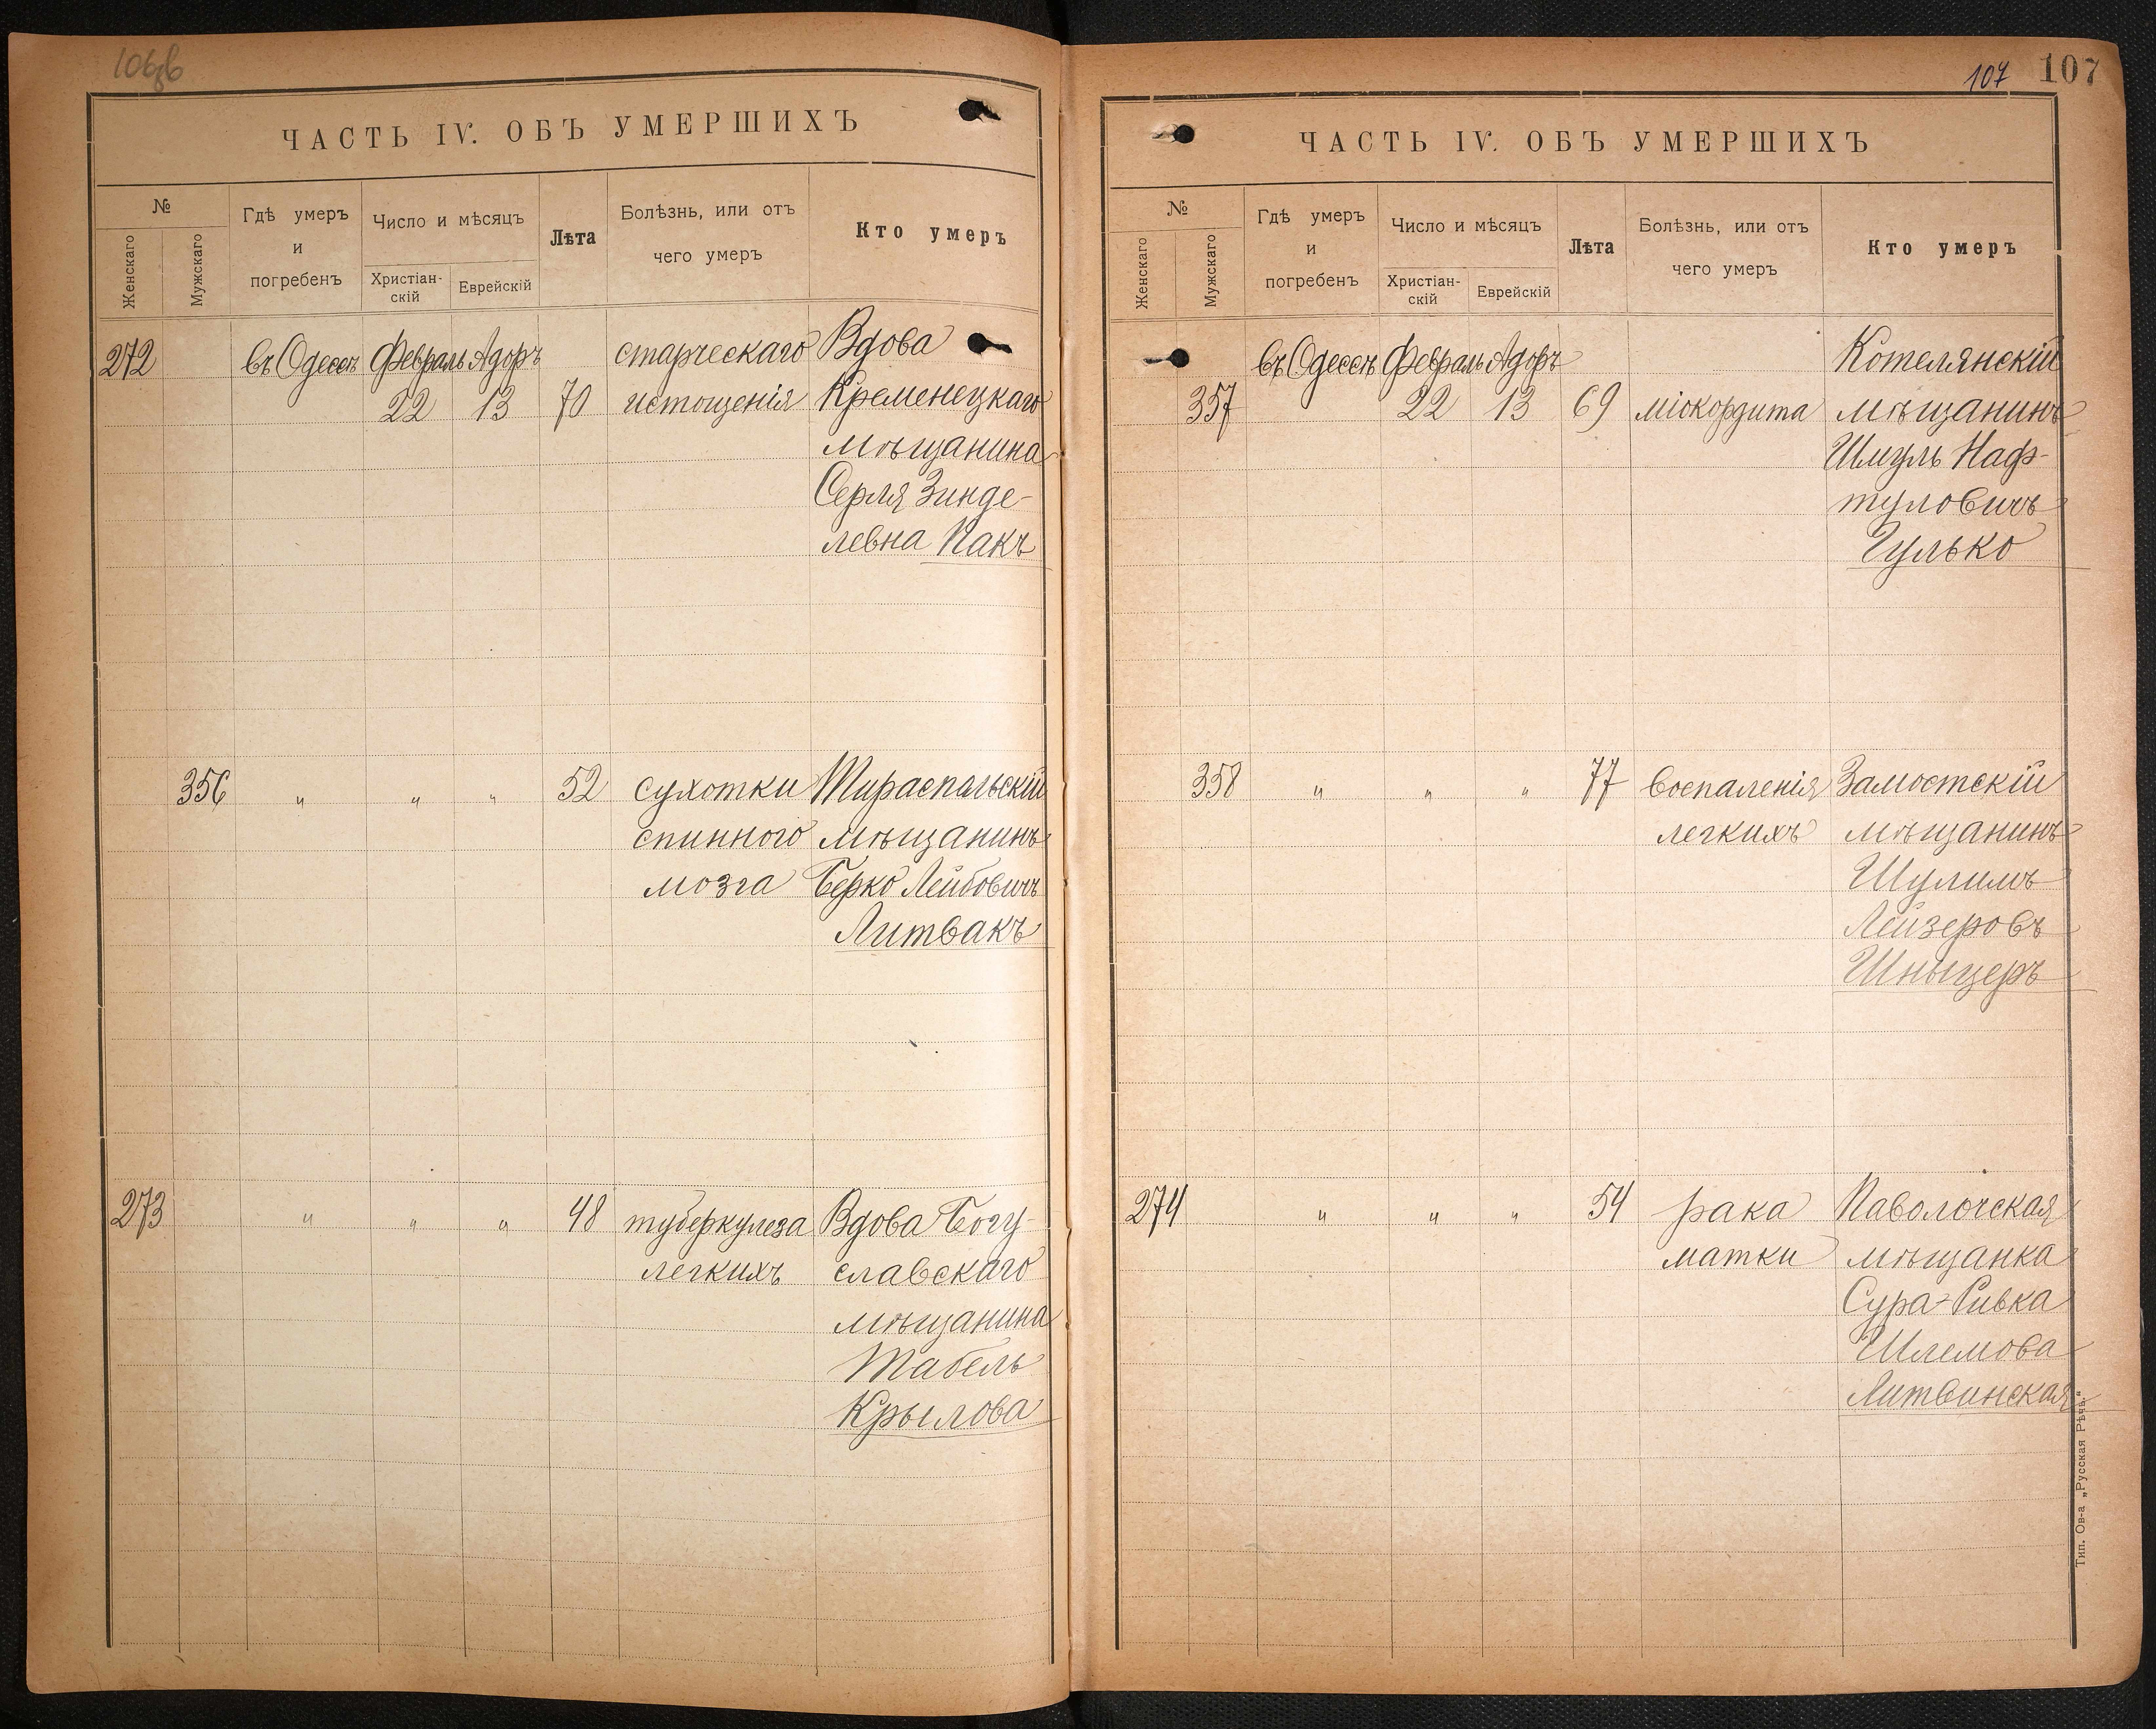 106об
ЧАСТЬ IV. ОБЪ УМЕРШИХЪ
№
Женскаго
Мужскаго
Гдѣ умеръ
и
погребенъ
Число и мѣсяцъ
Христіан-
скій
Еврейскій
Лѣта
Болѣзнь, или отъ
чего умеръ
Кто умеръ
272 въ Одессѣ Февраль Адоръ старческаго Вдова
22 13 70 истощенія Кременецкаго
мѣщанина
Серля Зинде-
левна Пакъ
356 " " " 52 сухотки Тираспальскій
спинного мѣщанинъ
мозга Берко Лейбовичъ
Литвакъ
273 " " " 48 туберкулеза Вдова Богу-
легкихъ славскаго
мѣщанина
Табель
Крылова
107 107
ЧАСТЬ IV. ОБЪ УМЕРШИХЪ
№
Женскаго
Мужскаго
Гдѣ умеръ
и
погребенъ
Число и мѣсяцъ
Христіан-
скій
Еврейскій
Лѣта
Болѣзнь, или отъ
чего умеръ
Кто умеръ
въ Одессѣ Февраль Адоръ Котелянскій
357 22 13 69 міокордита мѣщанинъ
Шмуль Наф-
туловичъ
Гулько
358 " " " 77 воспаленія Замостскій
легкихъ мѣщанинъ
Шулимъ
Лейзеровъ
Шныцеръ
274 " " " 54 рака Паволочская
матки мѣщанка
Сура-Ривка
Шлемова
Литвинская
Тип. Ов-а „Русская Рѣчь."